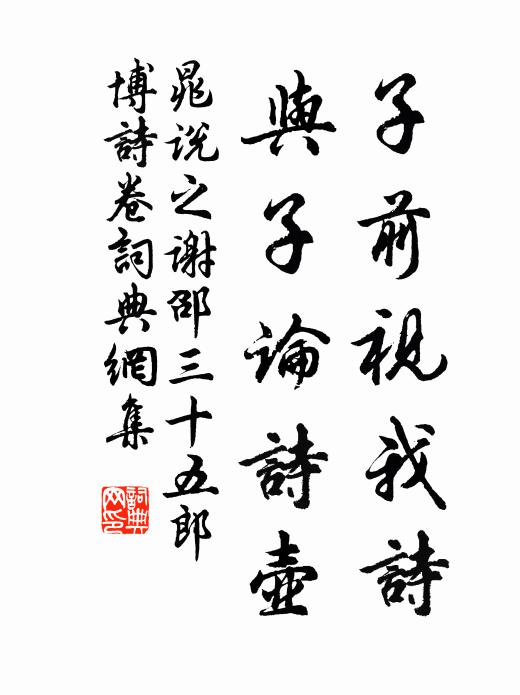 子前視我詩
與子論詩壺
晁說之謝邵三十五郎
博詩卷詞典網集
詞典網印